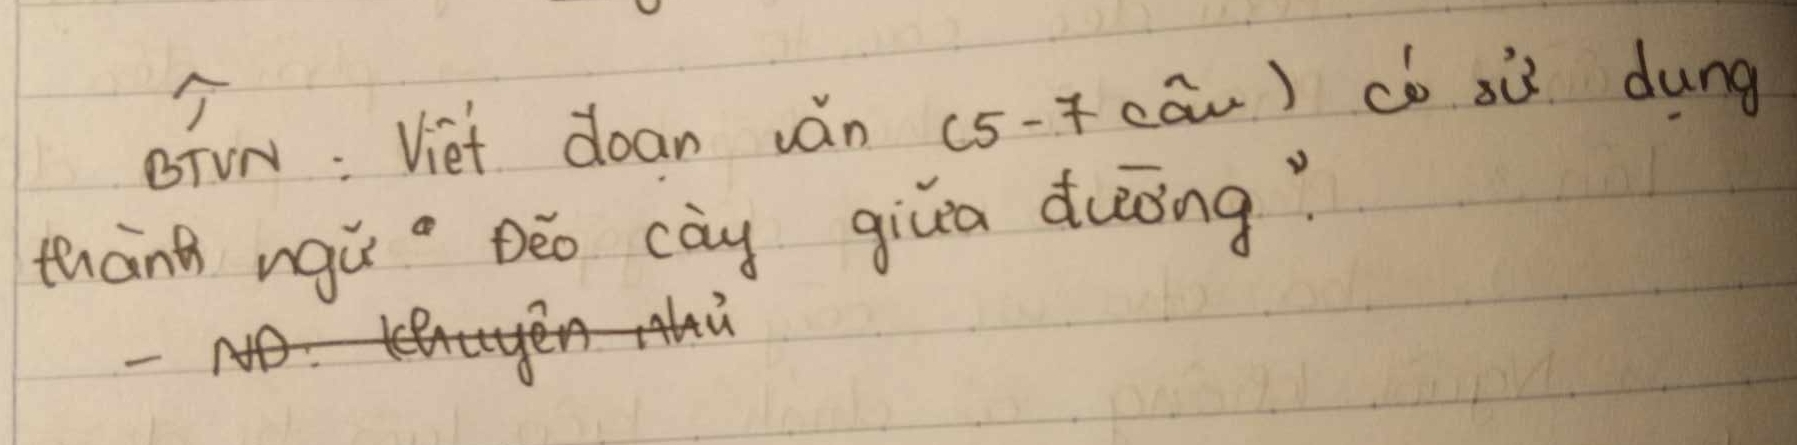 BTVN : Viết đoạn văn (5-7 câu) có sử dụng
thành ngữ "Đẽo cày giữa đường".
- NĐ: Khuyên nhủ